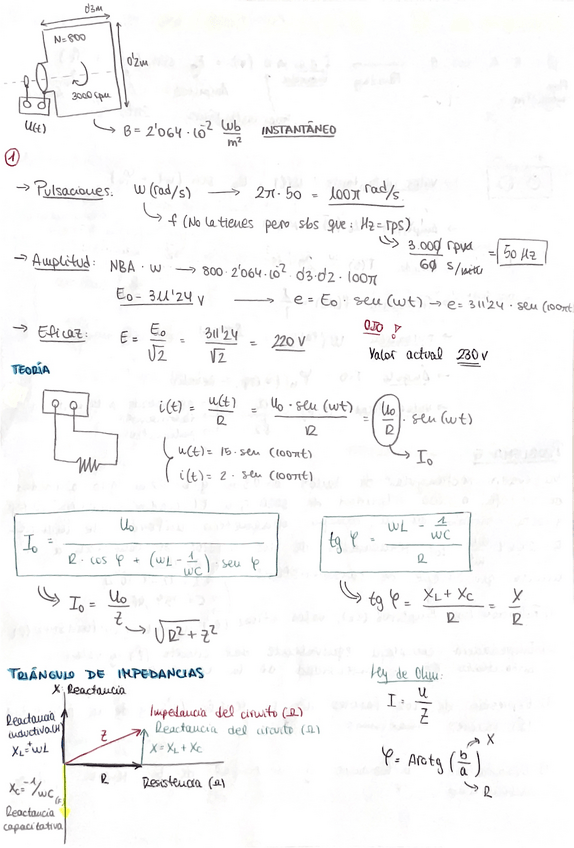 0'3m
N=800
0'2m
3000 rpm
U(t)
→ B = 2'064·10⁻² Wb/m² INSTANTÁNEO
①
→ Pulsaciones: W (rad/s) → 2π·50 = 100π rad/s
→ f (No la tienes pero sbs que: Hz = rps)
→ 3.000 rpm / 60 s/min = 50 Hz
→ Amplitud: NBA·w → 800·2'064·10²·0'3·0'2·100π
E₀ – 311'24 V → e = E₀·sen(wt) → e = 311'24·sen(100πt
→ Eficaz: E = E₀/√2 = 311'24/√2 = 220 V
OJO
Valor actual 230 V
TEORÍA
i(t) = u(t)/R = U₀·sen(wt)/R = U₀/R · sen(wt)
→ I₀
u(t) = 15·sen(100πt)
i(t) = 2·sen(100πt)
I₀ = U₀ / (R·cos φ + (wL – 1/wC)·sen φ)
tg φ = (wL – 1/wC) / R
→ I₀ = U₀/Z → √R²+Z²
→ tg φ = (X_L + X_C)/R = X/R
TRIÁNGULO DE IMPEDANCIAS
X Reactancia
Reactancia inductiva
X_L = +wL
Z
Impedancia del circuito (Ω)
Reactancia del circuito (Ω)
X = X_L + X_C
R
Resistencia (Ω)
X_C = -1/wC (F)
Reactancia
capacitativa
Ley de Ohm:
I = U/Z
φ = Arctg (b/a)
→ X
→ R